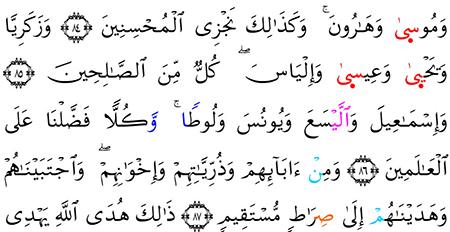 وَمُوسَىٰ وَهَٰرُونَ ۚ وَكَذَٰلِكَ نَجْزِى ٱلْمُحْسِنِينَ ۝٨٤ وَزَكَرِيَّا
وَيَحْيَىٰ وَعِيسَىٰ وَإِلْيَاسَ ۖ كُلٌّ مِّنَ ٱلصَّٰلِحِينَ ۝٨٥
وَإِسْمَٰعِيلَ وَٱلَّيْسَعَ وَيُونُسَ وَلُوطًا ۚ وَكُلًّا فَضَّلْنَا عَلَى
ٱلْعَٰلَمِينَ ۝٨٦ وَمِنْ ءَابَآئِهِمْ وَذُرِّيَّٰتِهِمْ وَإِخْوَٰنِهِمْ ۖ وَٱجْتَبَيْنَٰهُمْ
وَهَدَيْنَٰهُمْ إِلَىٰ صِرَٰطٍ مُّسْتَقِيمٍ ۝٨٧ ذَٰلِكَ هُدَى ٱللَّهِ يَهْدِى